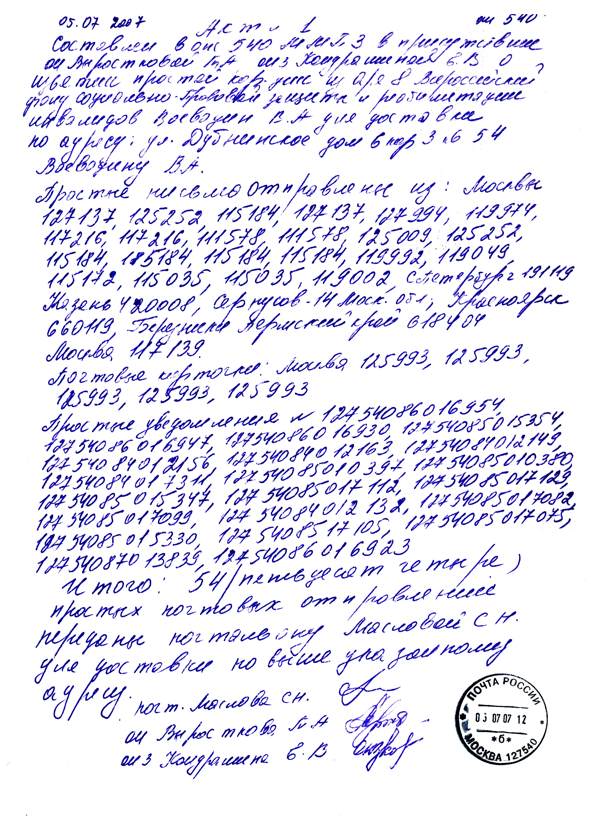 05.07 2007 Акт № 1 оп 540
Составлен в о/с 540 ММП 3 в присутствии
оп Выростковой П.А оп3 Кондрашиной Е.В о
простой кор Всероссийский
фонд социально-Правовой защиты и реабилитации
инвалидов Воеводин В.А для доставки
по адресу: ул. Дубнинское дом 8 кор 3 54
Воеводину В.А.
Простые письма отправлены из: Москвы
127137, 125252, 115184, 127137, 127994, 119974,
117216, 117216, 111578, 111578, 125009, 125252,
115184, 115184, 115184, 115184, 119992, 119049,
115172, 115035, 115035, 119002, С Петербург 191119
Казань 420008, Серпухов-14 Моск. обл; Красноярск
660119, Березники Пермский край 618404
Москва 117139.
Почтовые карточки: Москва 125993, 125993,
125993, 125993, 125993
Простые уведомления № 12754086016954,
12754086016947, 12754086016930, 12754085015354,
12754084012156, 12754084012163, 12754084012149,
12754084017311, 12754085010397, 12754085010380,
12754085015347, 12754085017112, 12754085017129,
12754085017099, 12754084012132, 12754085017082,
12754085015330, 1275408517105, 12754085017075,
12754087013839, 12754086016923
Итого: 54 (пятьдесят четыре)
простых почтовых отправлений
переданы почтальону Масловой С Н.
для доставки по выше указанному
адресу.
почт. Маслова СН.
оп Выросткова П А
оп3 Кондрашина Е. В
ПОЧТА РОССИИ
07 07 12
*б*
МОСКВА 127540